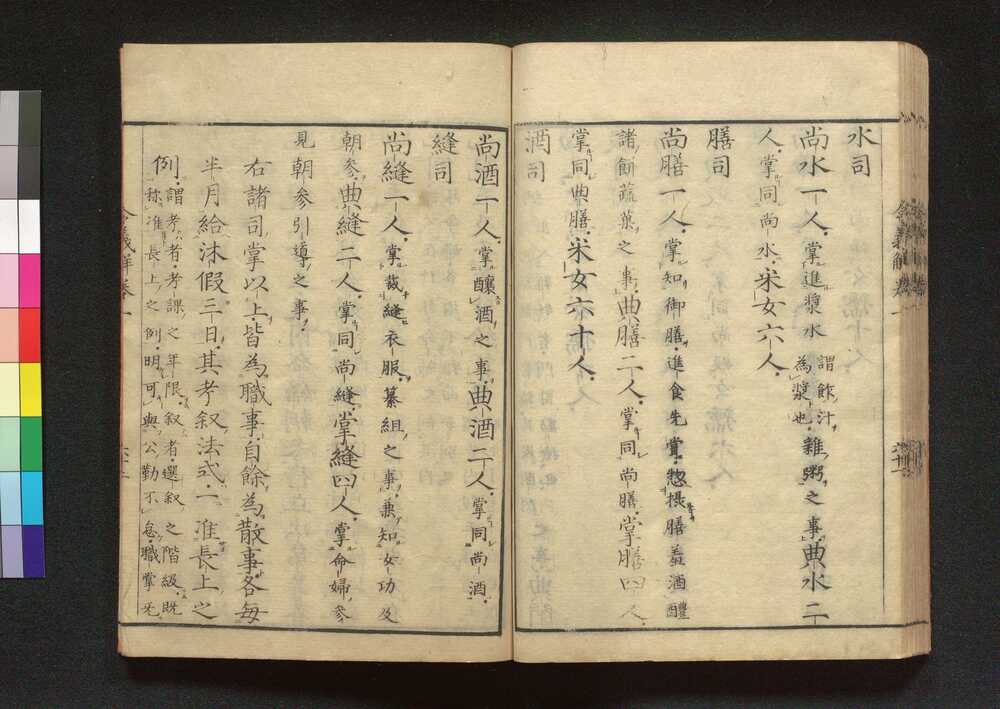 水司
尚水一人。掌進漿水謂飲汁為漿也。雜粥之事。典水二
人。掌同尚水。采女六人。
膳司
尚膳一人。掌知御膳。進食先嘗。惣摂膳羞酒醴
諸餅蔬菓之事。典膳二人。掌同尚膳。掌膳四人
掌同典膳。采女六十人。
酒司
尚酒一人。掌釀酒之事。典酒二人。掌同尚酒。
縫司
尚縫一人。掌裁縫衣服。纂組之事。兼知女功及
朝参。典縫二人。掌同尚縫。掌縫四人。掌命婦参
見朝参引導之事。
右諸司掌以上。皆為職事。自餘為散事。各毎
半月給沐假三日。其考叙法式。一准長上之
例。謂考者。考課之年限。叙者。選叙之階級。既
称准長上之例。明可與公勤不怠。職掌无
令義解巻一